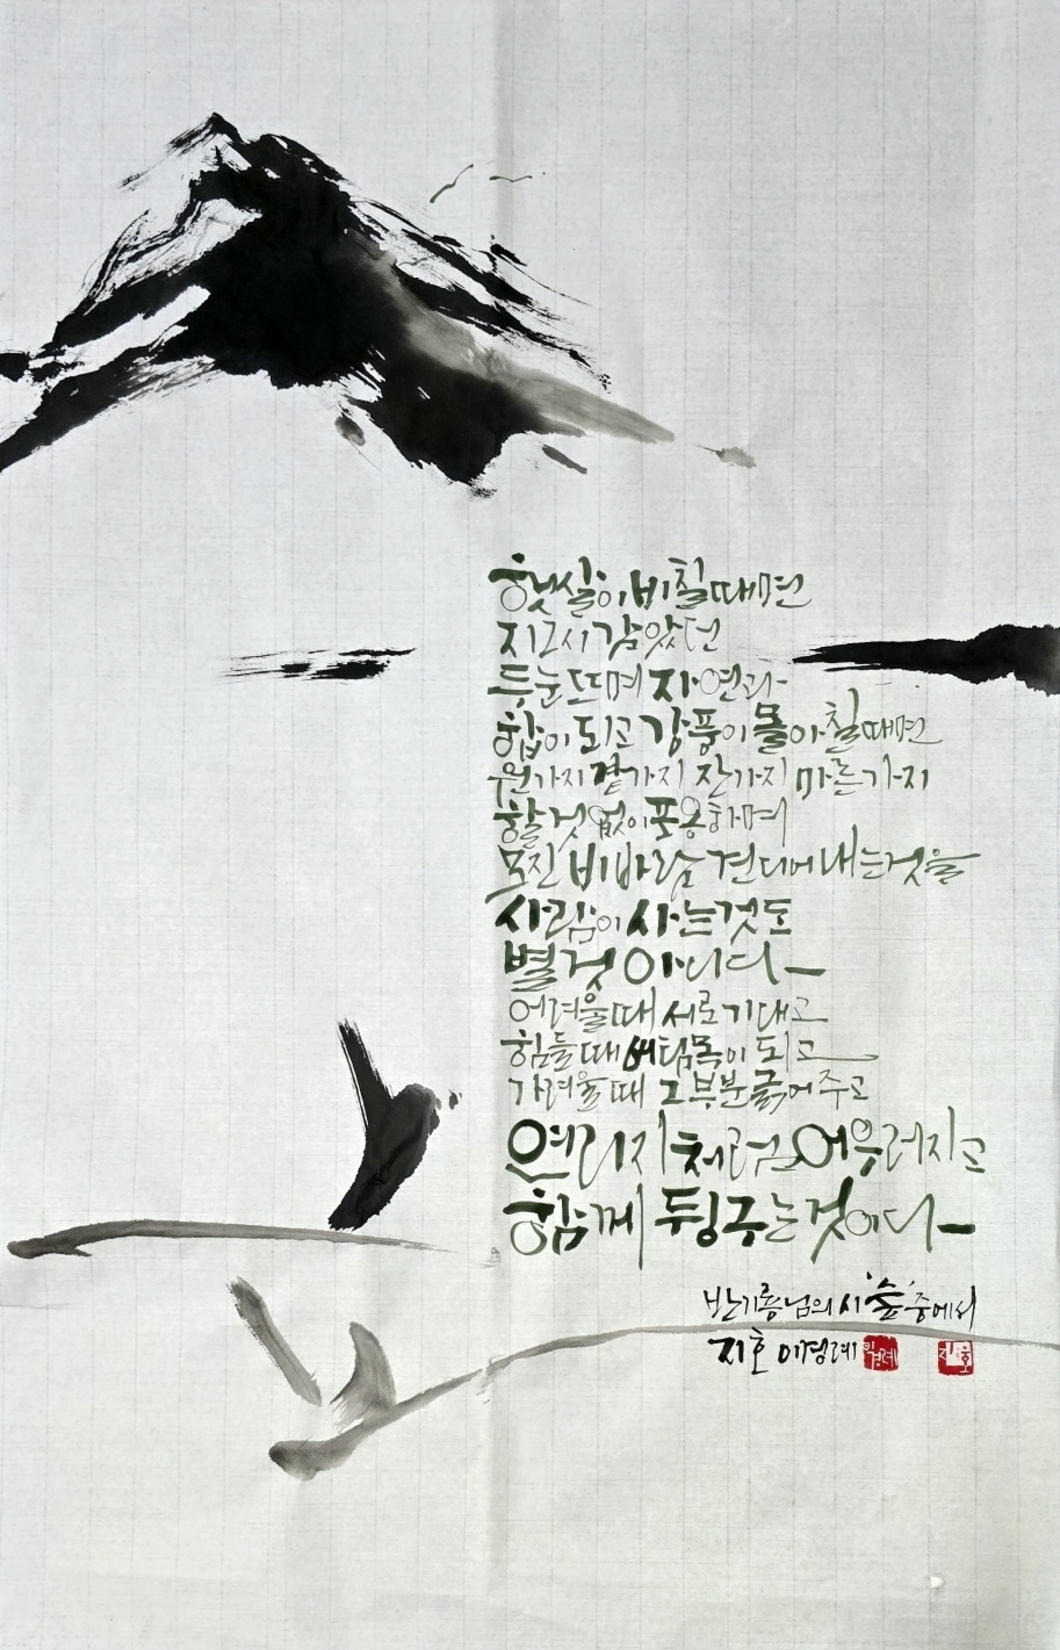 햇살이 비칠때면
지그시 감았던
두눈 뜨며 자연과
합이 되고 강풍이 몰아칠때면
원가지 곁가지 잔가지 마른가지
할것없이 포옹하며
모진 비바람 견디어내는것을
사람이 사는것도
별것 아니다
어려울때 서로 기대고
힘들때 버팀목이 되고
가려울때 그 부분 긁어주고
연리지처럼 어우러지고
함께 뒹구는것이다
반기룡님의 시 '숲' 중에서
지호 이경례 이경례 지호